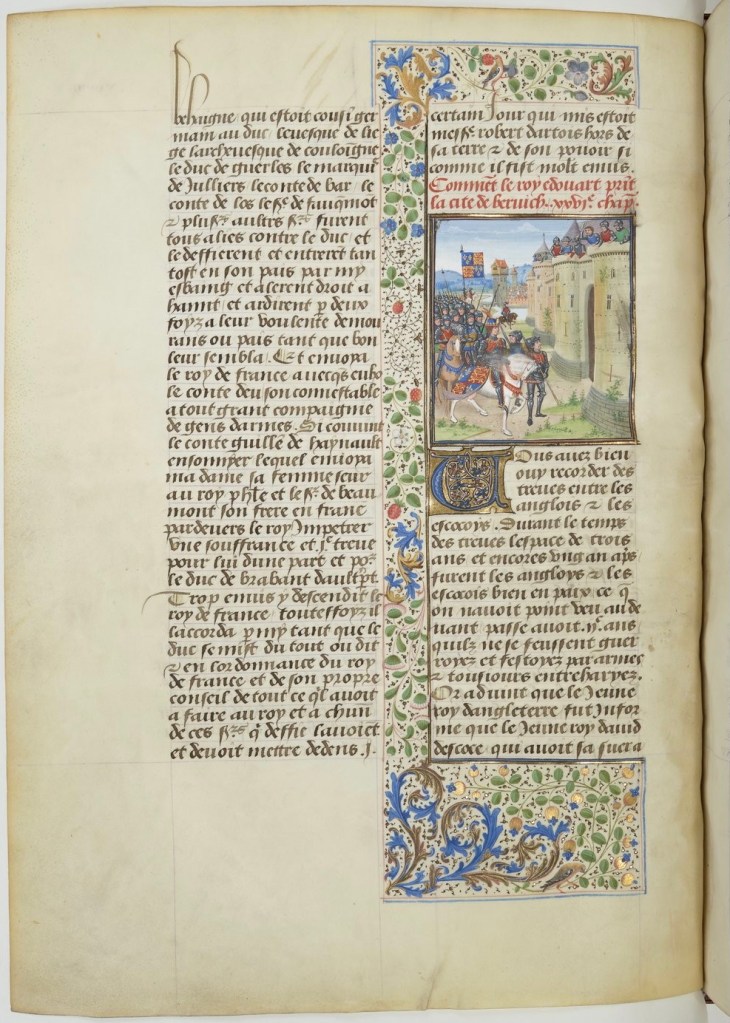 behaigne qui estoit cousī ger
main au duc levesque de lie
ge larchevesque de coulōgne
le duc de guerles le marquis
de Julliers le conte de bar le
conte de los le sʳ. de fauqmōt
⁊ plusʳˢ aultres sʳˢ furent
tous alies contre le duc et
le deffierent et entrerēt tan
tost en son pais par my
esbaing et alerent droit a
hanut et ardirent p deux
foyz a leur voulente demou
rans ou pais tant que bon
leur sembla. Et envoya
le roy de france avecqs
le conte deu son connestable
a tout grant compaignie
de gens darmes. Si convint
le conte guillē de haynault
ensonnyer lequel envoya
ma dame sa femme seur
au roy phle et le sʳ. de beau
mont son frere en franc
pardevers le roy Impetrer
vne souffrance et Iᵉ treve
pour lui dune part et poʳ
le duc de brabant daultʳ pt.
Trop envis y descendit le
roy de france touteffoyz il
laccorda p my tant que le
duc se mist du tout ou dit
⁊ en lordonnance du roy
de france et de son propre
conseil de tout ce ql avoit
a faire au roy et a chūn
de ces sʳˢ q deffie lavoiēt
et devoit mettre dedens .I.
certain Jour qui mis estoit
messʳᵉ robert dartois hors de
sa terre ⁊ de son povoir si
comme il fist molt envis.
Commēt le roy edouart prīt
la cite de bervich. xxviᵉ. chapʳᵉ.
Vous avez bien
ouy recorder des
treves entre les
anglois ⁊ les
escocoys. Durant le temps
des treves lespace de trois
ans et encores ung an aps
furent les angloys ⁊ les
escocois bien en paix ce q
on navoit point veu au de
vant passe avoit .IIᶜ. ans
quilz ne se feussent guer
royez et festoyez par armes
⁊ tousiours entreharyez.
Or advint que le Jeune
roy dangleterre fut Infor
me que le Jeune roy david
descoce qui avoit sa suer a